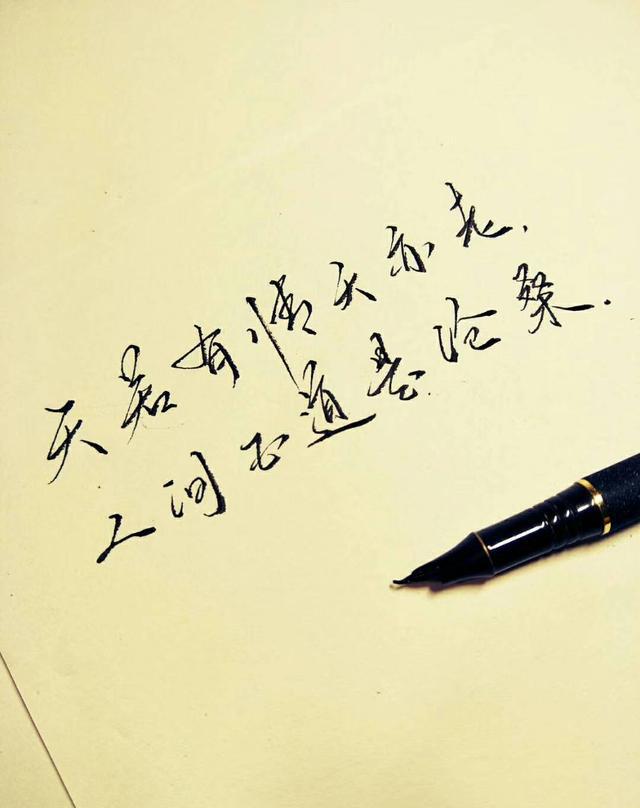 天若有情天亦老.
人间正道是沧桑.